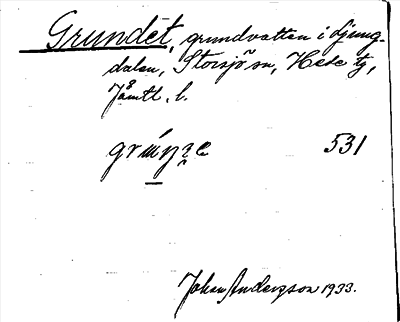 Grundet, grundvatten i Ljung-
dalen, Storsjö sn, Hede tg,
Jämtl. l.
531
Johan Andersson 1933.